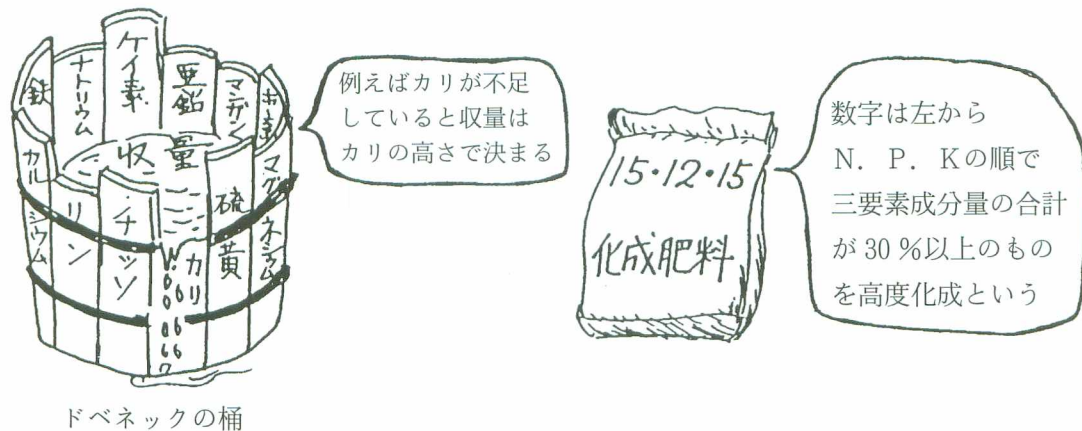 鉄
ナトリウム
ケイ素
亜鉛
マンガン
ホウ素
カルシウム
リン
チッソ
カリ
硫黄
マグネシウム
収量
例えばカリが不足
していると収量は
カリの高さで決まる
ドベネックの桶
15・12・15
化成肥料
数字は左から
N．P．Kの順で
三要素成分量の合計
が30％以上のもの
を高度化成という